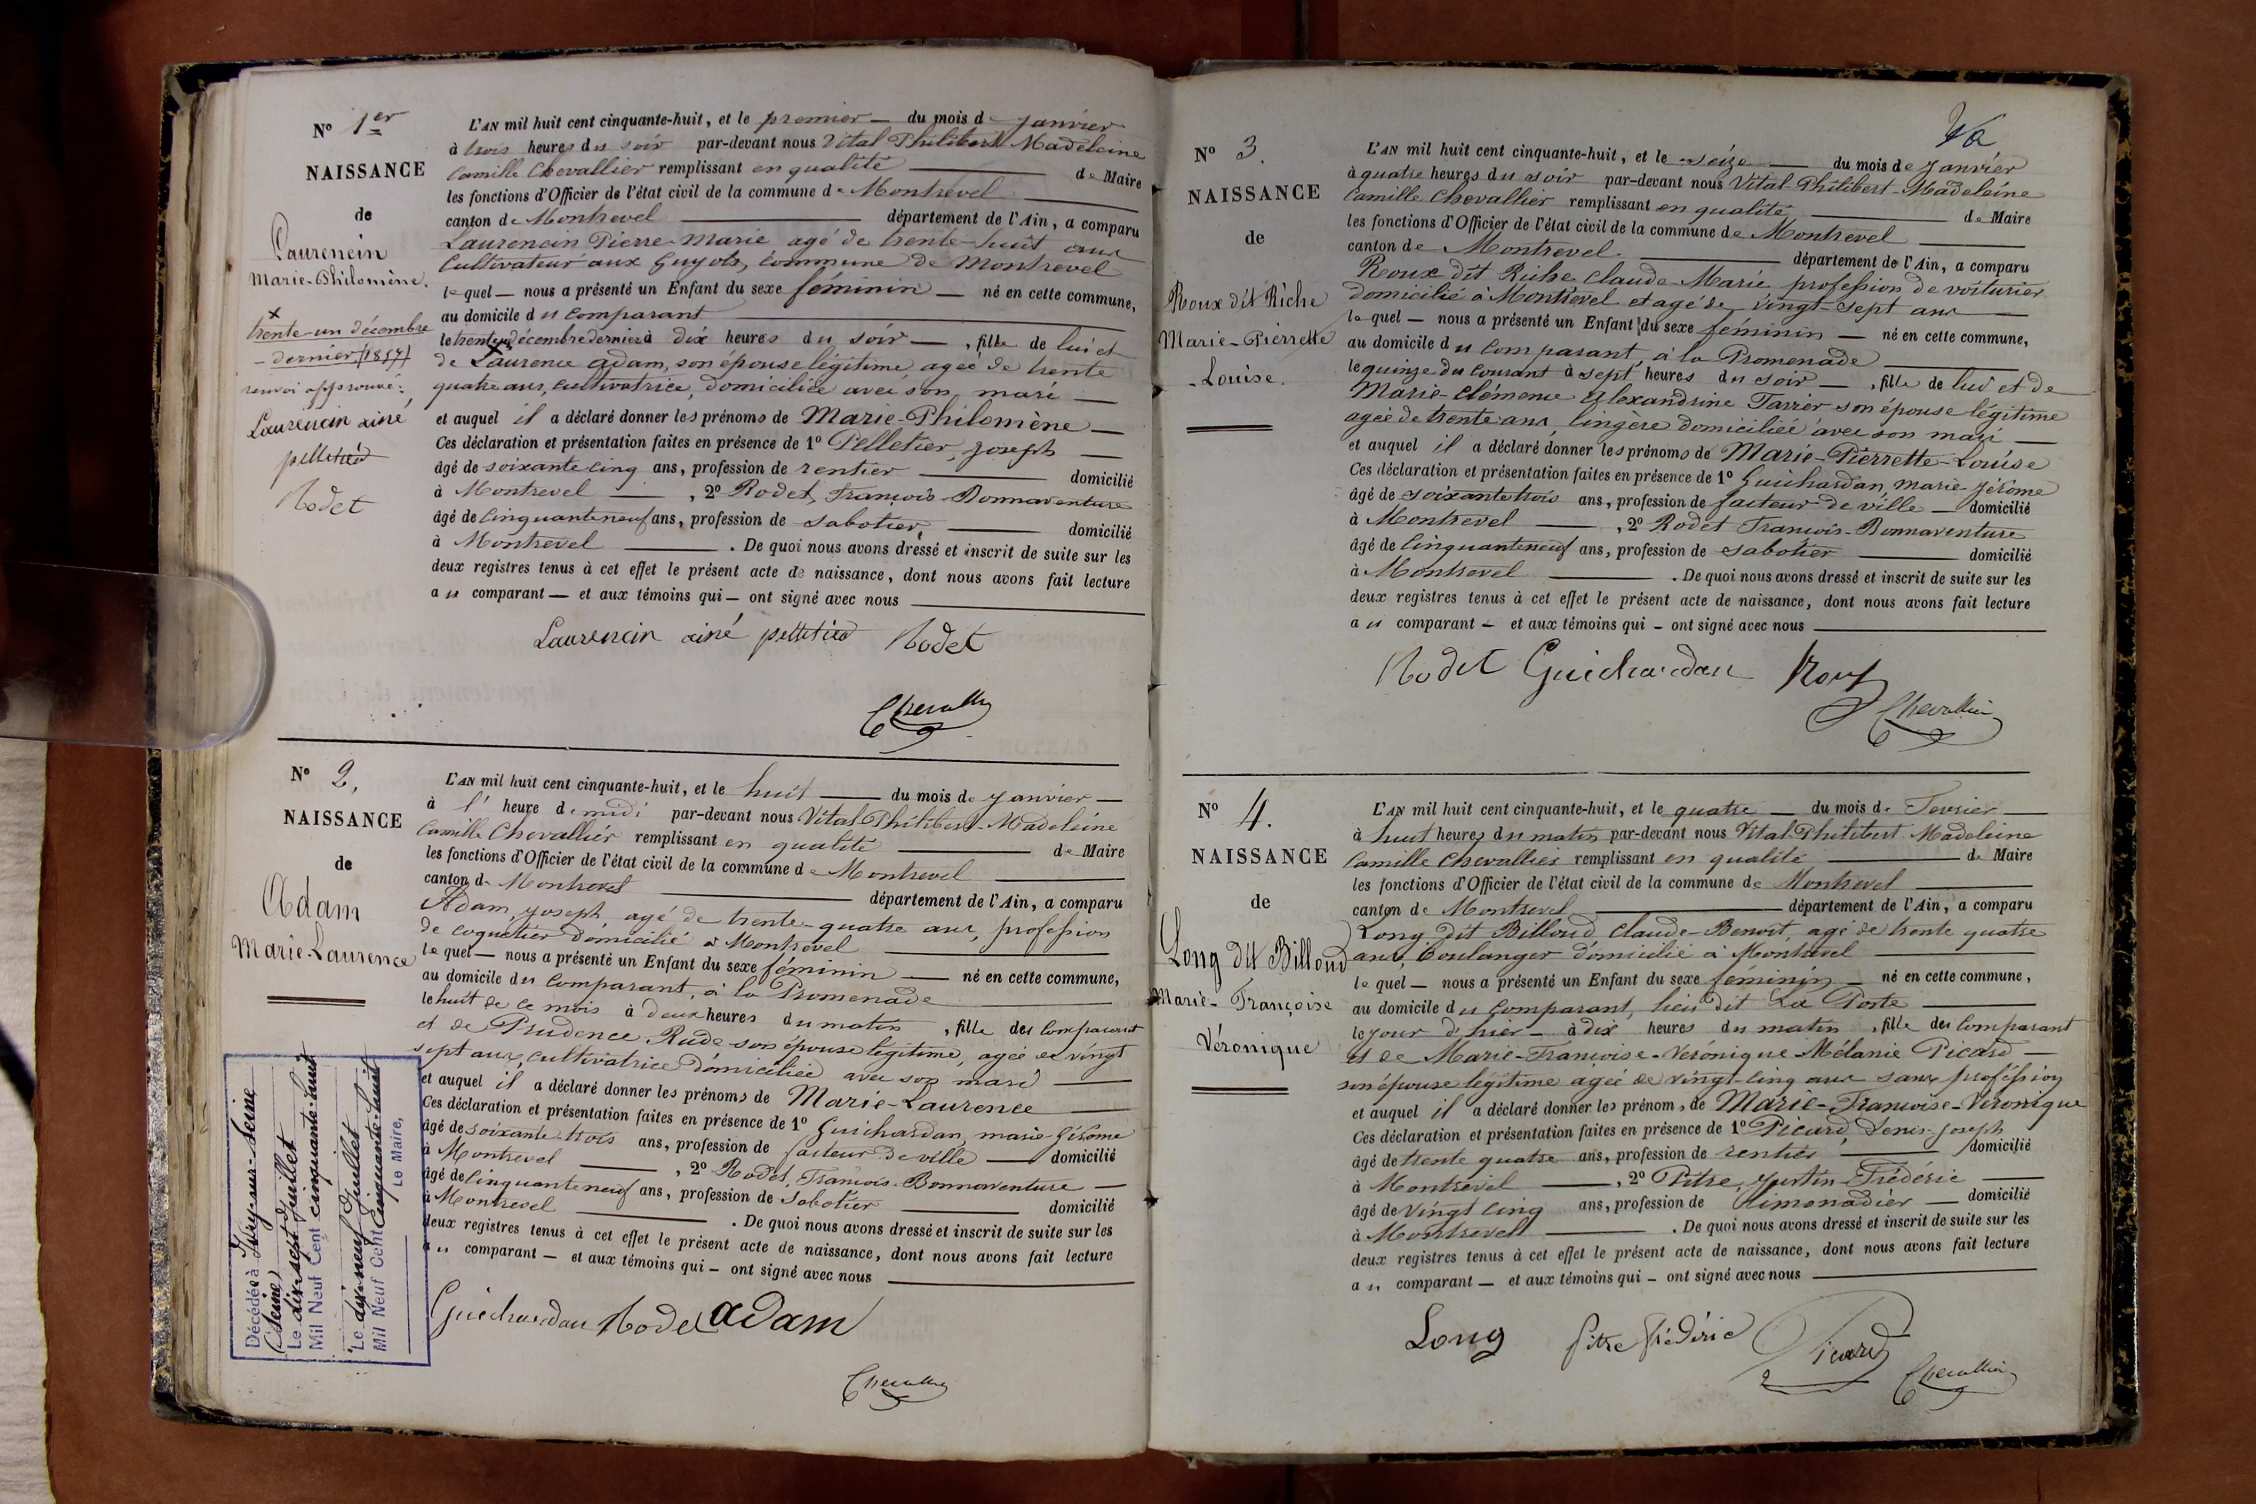 N° 1er
NAISSANCE
de
Laurencin
Marie-Philomène.
trente-un décembre
dernier (1857)
renvoi approuvé:
Laurencin ainé
pelletier
Rodet
L'AN mil huit cent cinquante-huit, et le premier — du mois de Janvier
à trois heures du soir par-devant nous Vital Philibert Madeleine
Camille Chevallier remplissant en qualité — de Maire
les fonctions d'Officier de l'état civil de la commune de Montrevel
canton de Montrevel — département de l'Ain, a comparu
Laurencin Pierre-Marie agé de trente-huit ans
Cultivateur aux Guyots, Commune de Montrevel
lequel — nous a présenté un Enfant du sexe féminin — né en cette commune,
au domicile du Comparant
le trente un décembre dernier à dix heures du soir — , fille de lui et
de Laurence Adam, son épouse légitime agée de trente
quatre ans, cultivatrice, domiciliée avec son mari —
et auquel il a déclaré donner les prénoms de Marie-Philomène —
Ces déclaration et présentation faites en présence de 1° Pelletier, Joseph —
âgé de soixante cinq ans, profession de rentier — domicilié
à Montrevel — , 2° Rodet, François-Bonnaventure
âgé de Cinquante neuf ans, profession de Sabotier, — domicilié
à Montrevel — . De quoi nous avons dressé et inscrit de suite sur les
deux registres tenus à cet effet le présent acte de naissance, dont nous avons fait lecture
au comparant — et aux témoins qui — ont signé avec nous
Laurencin ainé pelletier Rodet
Chevallier
N° 2,
NAISSANCE
de
Adam
Marie-Laurence
L'AN mil huit cent cinquante-huit, et le huit — du mois de Janvier —
à l' heure de midi par-devant nous Vital Philibert-Madeleine
Camille Chevallier remplissant en qualité — de Maire
les fonctions d'Officier de l'état civil de la commune de Montrevel
canton de Montrevel — département de l'Ain, a comparu
Adam, Joseph agé de trente-quatre ans, profession
de coquetier domicilié à Montrevel
lequel — nous a présenté un Enfant du sexe féminin — né en cette commune,
au domicile du Comparant, à la Promenade
le huit de ce mois à deux heures du matin , fille du Comparant
et de Prudence Rude son épouse légitime, agée de vingt
sept ans, cultivatrice domiciliée avec son mari —
et auquel il a déclaré donner les prénoms de Marie-Laurence
Ces déclaration et présentation faites en présence de 1° Guichardan, marie-Jérome
âgé de soixante trois ans, profession de facteur de ville — domicilié
à Montrevel — , 2° Rodet, François-Bonnaventure —
âgé de Cinquante neuf ans, profession de Sabotier — domicilié
à Montrevel — . De quoi nous avons dressé et inscrit de suite sur les
deux registres tenus à cet effet le présent acte de naissance, dont nous avons fait lecture
au comparant — et aux témoins qui — ont signé avec nous
Guichardan Rodet Adam
Chevallier
Décédée à Ivry-sur-Seine
(Seine)
Le dix-sept Juillet
Mil Neuf Cent cinquante-huit
Le dix-neuf Juillet
Mil Neuf Cent Cinquante-huit
Le Maire,
N° 3.
NAISSANCE
de
Roux dit Riche
Marie-Pierrette
-Louise.
L'AN mil huit cent cinquante-huit, et le seize — du mois de Janvier
à quatre heures du soir par-devant nous Vital-Philibert-Madeleine
Camille Chevallier remplissant en qualité — de Maire
les fonctions d'Officier de l'état civil de la commune de Montrevel
canton de Montrevel — département de l'Ain, a comparu
Roux dit Riche Claude-Marie profession de voiturier
domicilié à Montrevel et agé de vingt-sept ans —
lequel — nous a présenté un Enfant du sexe féminin — né en cette commune,
au domicile du comparant, à la Promenade
le quinze du courant à sept heures du soir — , fille de lui et de
Marie-Clémence Alexandrine Tarrier son épouse légitime
agée de trente ans, lingère domiciliée avec son mari —
et auquel il a déclaré donner les prénoms de Marie-Pierrette-Louise
Ces déclaration et présentation faites en présence de 1° Guichardan, marie-Jérome
âgé de soixante trois ans, profession de facteur de ville — domicilié
à Montrevel — , 2° Rodet François-Bonnaventure
âgé de Cinquante neuf ans, profession de Sabotier — domicilié
à Montrevel — . De quoi nous avons dressé et inscrit de suite sur les
deux registres tenus à cet effet le présent acte de naissance, dont nous avons fait lecture
au comparant — et aux témoins qui — ont signé avec nous
Rodet Guichardan Roux
Chevallier
N° 4.
NAISSANCE
de
Long dit Billoud
Marie-Françoise
Véronique
L'AN mil huit cent cinquante-huit, et le quatre — du mois de Fevrier
à huit heures du matin par-devant nous Vital-Philibert Madeleine
Camille Chevallier remplissant en qualité — de Maire
les fonctions d'Officier de l'état civil de la commune de Montrevel
canton de Montrevel — département de l'Ain, a comparu
Long dit Billoud Claude-Benoit agé de trente quatre
ans, boulanger domicilié à Montrevel
lequel — nous a présenté un Enfant du sexe féminin — né en cette commune,
au domicile du comparant, lieu dit La Poste
le jour d'hier — à dix heures du matin , fille du Comparant
et de Marie-Françoise-Verónique Mélanie Picard —
son épouse légitime agée de vingt-cinq ans sans profession
et auquel il a déclaré donner les prénoms de Marie-Françoise-Veronique
Ces déclaration et présentation faites en présence de 1° Picard, Denis-Joseph
âgé de trente quatre ans, profession de rentier — domicilié
à Montrevel — , 2° Pitre, Justin-Frédéric
âgé de vingt cinq ans, profession de limonadier — domicilié
à Montrevel — . De quoi nous avons dressé et inscrit de suite sur les
deux registres tenus à cet effet le présent acte de naissance, dont nous avons fait lecture
au comparant — et aux témoins qui — ont signé avec nous
Long pitre frédéric Picard
Chevallier